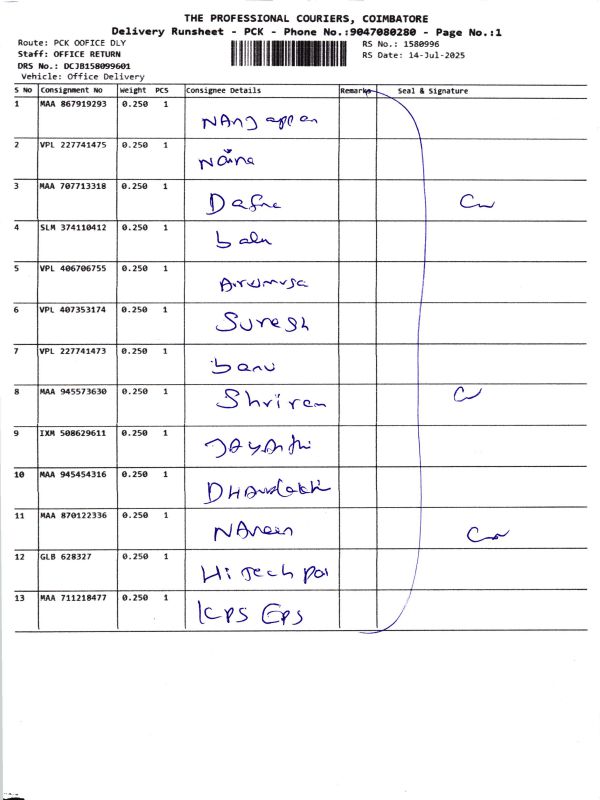 THE PROFESSIONAL COURIERS, COIMBATORE
Delivery Runsheet - PCK - Phone No.:9047080280 - Page No.:1
Route: PCK OOFICE DLY RS No.: 1580996
Staff: OFFICE RETURN RS Date: 14-Jul-2025
DRS No.: DCJB158099601
Vehicle: Office Delivery
S No Consignment No Weight PCS Consignee Details Remarks Seal & Signature
1 MAA 867919293 0.250 1 NANJappan
2 VPL 227741475 0.250 1 Naina
3 MAA 707713318 0.250 1
4 SLM 374110412 0.250 1 balu
5 VPL 406706755 0.250 1
6 VPL 407353174 0.250 1 Suresh
7 VPL 227741473 0.250 1 banu
8 MAA 945573630 0.250 1 Shriram
9 IXM 508629611 0.250 1 JAYANthi
10 MAA 945454316 0.250 1
11 MAA 870122336 0.250 1 NAveen
12 GLB 628327 0.250 1 Hi Tech
13 MAA 711218477 0.250 1 KPS EPS